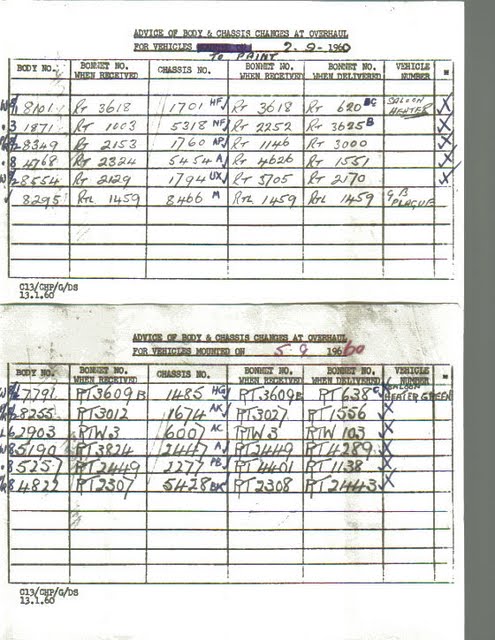 ADVICE OF BODY & CHASSIS CHANGES AT OVERHAUL
FOR VEHICLES 2-9-1960
TO PAINT
BODY NO. BONNET NO. WHEN RECEIVED CHASSIS NO. BONNET NO. WHEN RECEIVED BONNET NO. WHEN DELIVERED VEHICLE NUMBER
8101 RT 3618 1701 HF RT 3618 RT 620 BC SALOON HEATER X
1871 RT 1003 5318 NF RT 2252 RT 3625 B X
8349 RT 2153 1760 AP RT 1146 RT 3000 X
4768 RT 2324 5454 A RT 4626 RT 1551 X
8554 RT 2129 1794 UX RT 3705 RT 2170 X
8295 RTL 1459 8466 M RTL 1459 RTL 1459 GB PLAQUE
C13/CHP/G/DS
13.1.60
ADVICE OF BODY & CHASSIS CHANGES AT OVERHAUL
FOR VEHICLES MOUNTED ON 5 9 1960
BODY NO. BONNET NO. WHEN RECEIVED CHASSIS NO. BONNET NO. WHEN RECEIVED BONNET NO. WHEN DELIVERED VEHICLE NUMBER
7791 RT3609B 1485 HG RT3609B RT638C SALOON HEATER GREEN
8255 RT3012 1674 AK RT3027 RT1556 X
2903 RTW3 6007 AC RTW3 RTW103 X
5190 RT3824 2447 A RT2449 RT4289 X
5257 RT2449 2277 PB RT4401 RT1138 X
4822 RT2307 5428 BK RT2308 RT2443 X
C13/CHP/G/DS
13.1.60